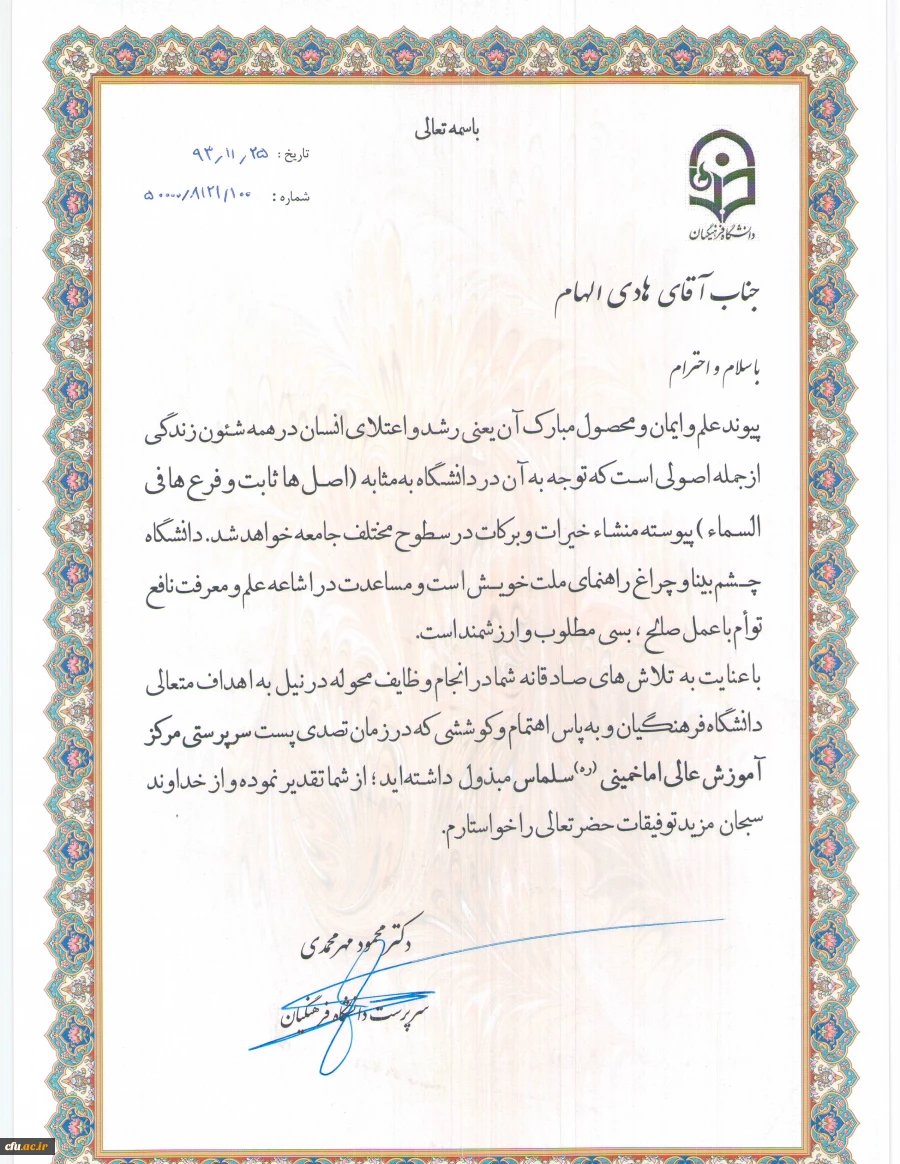 باسمه تعالی
تاریخ : ۹۳٫۱۱٫۲۵
شماره : ۵۰۰۰۰/۸۱۲۱/۱۰۰
دانشگاه فرهنگیان
جناب آقای هادی الهام
با سلام و احترام
پیوند علم و ایمان و محصول مبارک آن یعنی رشد و اعتلای انسان در همه شئون زندگی
از جمله اصولی است که توجه به آن در دانشگاه به مثابه (اصل ها ثابت و فرع ها فی
السماء ) پیوسته منشاء خیرات و برکات در سطوح مختلف جامعه خواهد شد. دانشگاه
چشم بینا و چراغ راهنمای ملت خویش است و مساعدت در اشاعه علم و معرفت نافع
توأم با عمل صالح ، بسی مطلوب و ارزشمند است.
با عنایت به تلاش های صادقانه شما در انجام وظایف محوله در نیل به اهداف متعالی
دانشگاه فرهنگیان و به پاس اهتمام و کوششی که در زمان تصدی پست سرپرستی مرکز
آموزش عالی امام خمینی (ره) سلماس مبذول داشته اید ؛ از شما تقدیر نموده و از خداوند
سبحان مزید توفیقات حضرتعالی را خواستارم.
دکتر محمود مهرمحمدی
سرپرست دانشگاه فرهنگیان
cfu.ac.ir